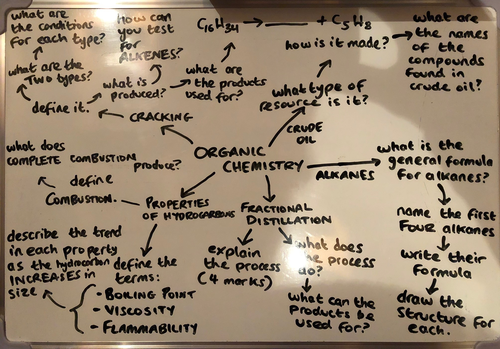 what are
the conditions
for each type?
how can
you test
for
ALKENES?
C16H34 → ___ + C5H8
how is it made?
what are
the names
of the
compounds
found in
crude oil?
what are the
TWO types?
what is
produced?
what are
the products
used for?
what type of
resource is it?
define it.
CRACKING
CRUDE
OIL
what does
COMPLETE COMBUSTION produce?
ORGANIC
CHEMISTRY
ALKANES
what is the
general formula
for alkanes?
define
COMBUSTION.
PROPERTIES
OF HYDROCARBONS
FRACTIONAL
DISTILLATION
name the first
FOUR alkanes
describe the trend
in each property
as the hydrocarbon
INCREASES in
size
define the
terms:
• BOILING POINT
• VISCOSITY
• FLAMMABILITY
explain
the process
(4 marks)
what does
the process
do?
what can the
products be
used for?
write their
formula
draw the
structure for
each.